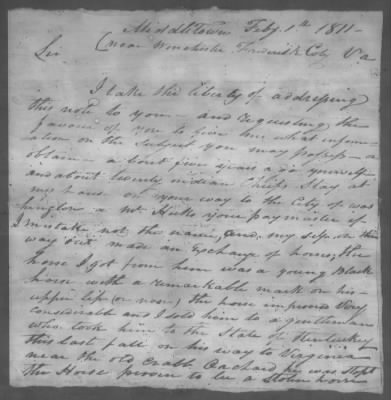 Middletown Feby 1th 1811-
(near Winchester Frederick Coty Va
Sir
I take the liberty of addressing
this note to you - and requesting the
favour of you to give me what infom-
ation on the Subject you may possess - or
obtain - about five years ago yourself
and about twenty indian Chiefs Stay at
my house on your way to the City of Was
hington a Mr Hicks your paymister if
I mistake not the name, and my self in this
way out made an Exchange of horses, the
horse I got from him was a young Black
horse with a remarkable mark on his
upper lip (or nose) the horse improved very
considerable and I sold him to a gentleman
who took him to the State of Kentuckey
this last fall on his way to Virginia
near the old Crabb Orchard he was stopt
the Horse proven to be a stolen horse